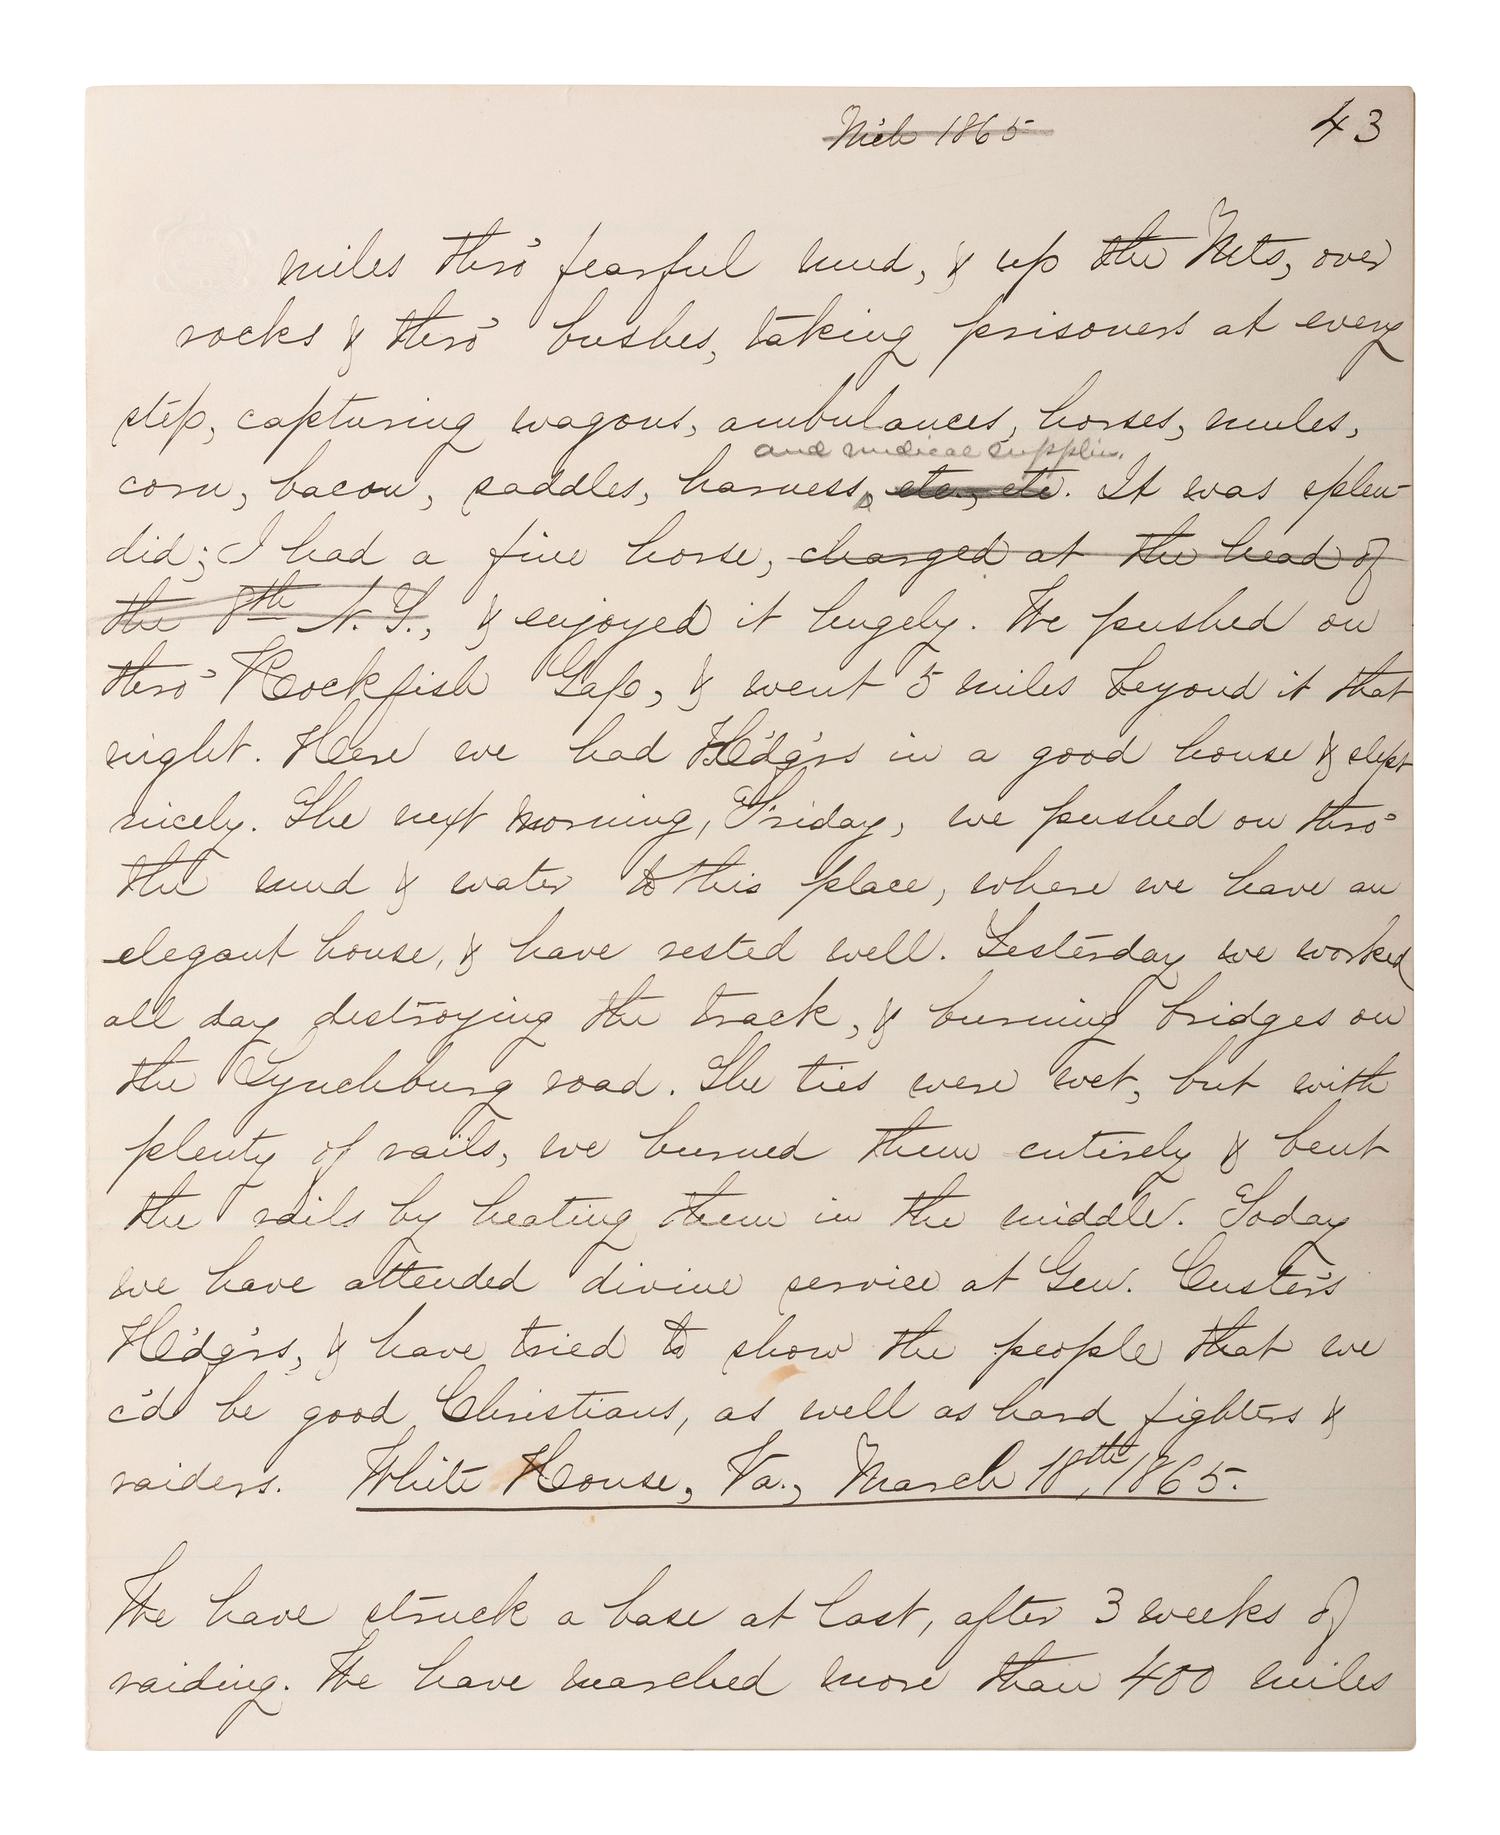 Mch 1865
43
miles thro' fearful mud, & up the Mts, over
rocks & thro' bushes, taking prisoners at every
step, capturing wagons, ambulances, horses, mules,
and medical supplies.
corn, bacon, saddles, harness, etc., etc. It was splen-
did; I had a fine horse, charged at the head of
the 8th N.Y., & enjoyed it hugely. We pushed on
thro' Rockfish Gap, & went 5 miles beyond it that
night. Here we had H'dq'rs in a good house & slept
nicely. The next morning, Friday, we pushed on thro'
the mud & water to this place, where we have an
elegant house, & have rested well. Yesterday we worked
all day destroying the track, & burning bridges on
the Lynchburg road. The ties were wet, but with
plenty of rails, we burned them entirely & bent
the rails by heating them in the middle. Today
we have attended divine service at Gen. Custer's
H'dq'rs, & have tried to show the people that we
c'd be good Christians, as well as hard fighters &
raiders. White House, Va., March 18th, 1865.
We have struck a base at last, after 3 weeks of
raiding. We have marched more than 400 miles